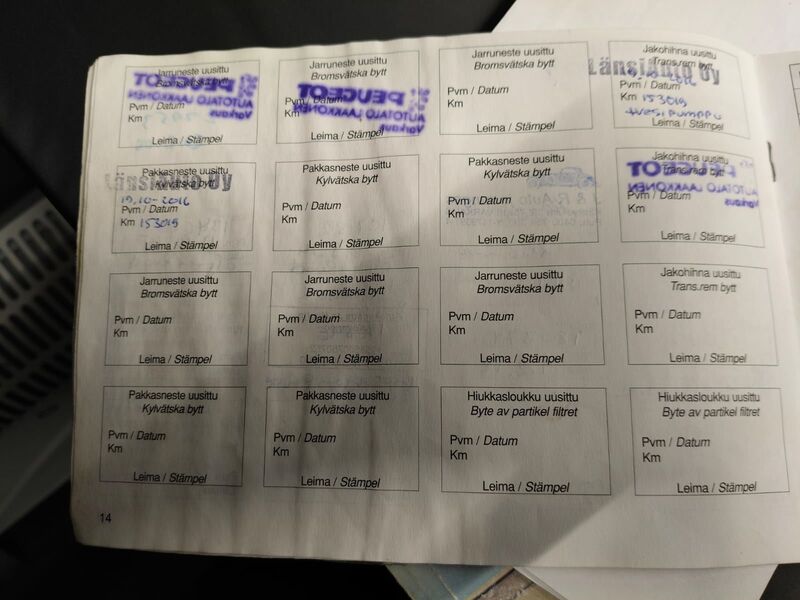 Jarruneste uusittu
Bromsvätska bytt
PEUGEOT
AUTOTALO LAAKKONEN
Varkaus
Pvm / Datum
Km
Leima / Stämpel
Jarruneste uusittu
Bromsvätska bytt
PEUGEOT
AUTOTALO LAAKKONEN
Varkaus
Pvm / Datum
Km
Leima / Stämpel
Jarruneste uusittu
Bromsvätska bytt
Pvm / Datum
Km
Leima / Stämpel
Jakohihna uusittu
Trans.rem bytt
LänsiAuto Oy
Pvm / Datum
Km 153019
Vesipumppu
Leima / Stämpel
Pakkasneste uusittu
Kylvätska bytt
LänsiAuto Oy
19.10-2016
Pvm / Datum
Km 153019
Leima / Stämpel
Pakkasneste uusittu
Kylvätska bytt
Pvm / Datum
Km
Leima / Stämpel
Pakkasneste uusittu
Kylvätska bytt
Pvm / Datum
Km
Leima / Stämpel
Jakohihna uusittu
Trans.rem bytt
PEUGEOT
AUTOTALO LAAKKONEN
Varkaus
Pvm / Datum
Km
Leima / Stämpel
Jarruneste uusittu
Bromsvätska bytt
Pvm / Datum
Km
Leima / Stämpel
Jarruneste uusittu
Bromsvätska bytt
Pvm / Datum
Km
Leima / Stämpel
Jarruneste uusittu
Bromsvätska bytt
Pvm / Datum
Km
Leima / Stämpel
Jakohihna uusittu
Trans.rem bytt
Pvm / Datum
Km
Leima / Stämpel
Pakkasneste uusittu
Kylvätska bytt
Pvm / Datum
Km
Leima / Stämpel
Pakkasneste uusittu
Kylvätska bytt
Pvm / Datum
Km
Leima / Stämpel
Hiukkasloukku uusittu
Byte av partikel filtret
Pvm / Datum
Km
Leima / Stämpel
Hiukkasloukku uusittu
Byte av partikel filtret
Pvm / Datum
Km
Leima / Stämpel
14